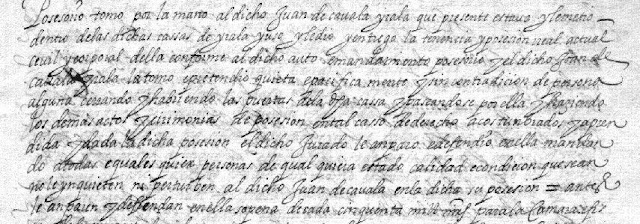 Posesorio tomo por la mano al dicho Juan de çauala yçiala que presente estaua y lemetio
dentro delas dichas cassas de yciala yuso y ledio y entrego la tenencia y posesion real actual
ceuil y corporal della conforme al dicho auto e mandamiento posesorio y el dicho Juan de
çauala yciala la tomo e aprehendio quieta e pacificamente y sin contradicion de persona
alguna cerrando y habriendo las puertas dela dha cassa y paseandose por ella y haziendo
los demas actos y zerimonias de posesion en tal casso de derecho acostunbrados y apren
dida y dada la dicha posesion el dicho Jurado le anparo e defendio en ella y mando
do atodas e quales quier personas de qual quiera estado calidad e condicion que sean
no le ynquieten ni perturben al dicho Juan de çauala en la dicha su posesion = antes
le anparen y defiendan en ella so pena de cada cinquenta mill mrs para la Camara